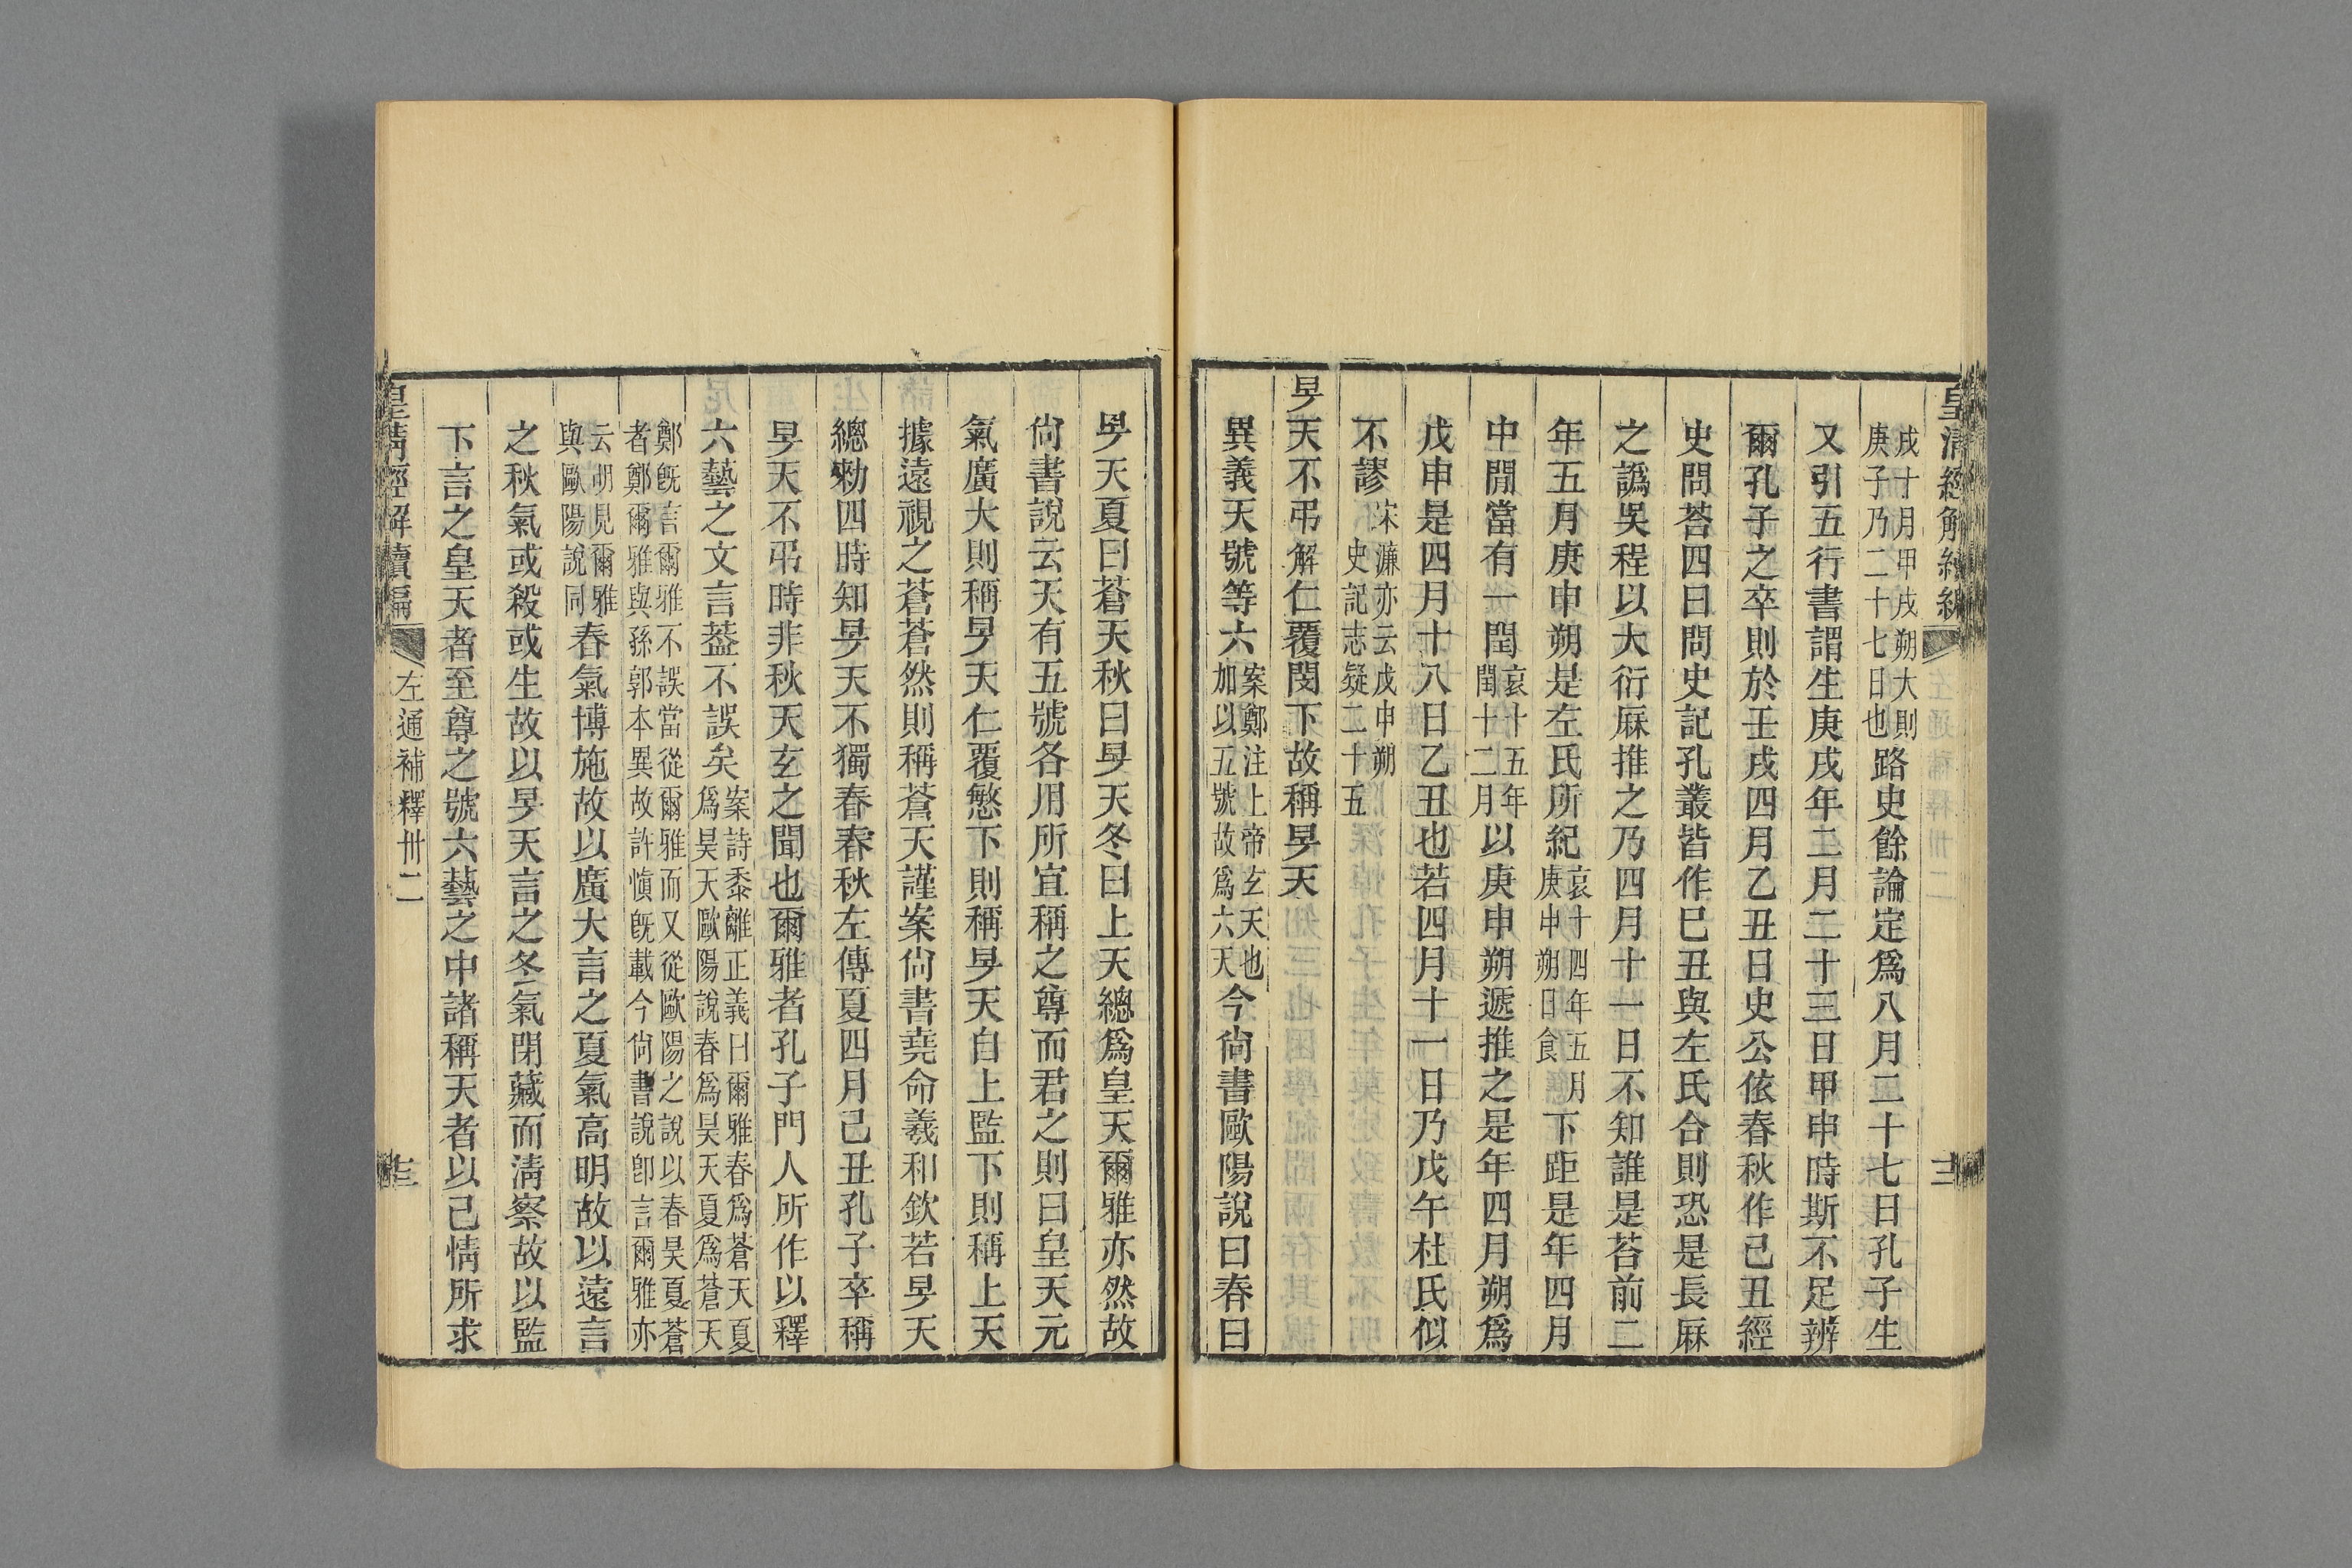 皇清經解續編
戌十月甲戌朔大則
庚子乃二十七日也路史餘論定爲八月二十七日孔子生
又引五行書謂生庚戌年二月二十三日甲申時斯不足辨
爾孔子之卒則於壬戌四月乙丑日史公依春秋作己丑經
史問荅四曰問史記孔叢皆作巳丑與左氏合則恐是長厤
之譌吳程以大衍厤推之乃四月十一日不知誰是荅前二
年五月庚申朔是左氏所紀哀十四年五月
庚申朔日食下距是年四月
中閒當有一閏哀十五年
閏十二月以庚申朔遞推之是年四月朔爲
戊申是四月十八日乙丑也若四月十一日乃戊午杜氏似
不謬宋濂亦云戊申朔
史記志疑二十五
旻天不弔解仁覆閔下故稱旻天
異義天號等六案鄭注上帝玄天也
加以五號故爲六天今尙書歐陽說曰春曰
旻天夏曰蒼天秋曰旻天冬曰上天總爲皇天爾雅亦然故
尙書說云天有五號各用所宜稱之尊而君之則曰皇天元
氣廣大則稱旻天仁覆慜下則稱旻天自上監下則稱上天
據遠視之蒼蒼然則稱蒼天謹案尙書堯命羲和欽若旻天
總勑四時知旻天不獨春春秋左傳夏四月己丑孔子卒稱
旻天不弔時非秋天玄之聞也爾雅者孔子門人所作以釋
六藝之文言葢不誤矣案詩黍離正義曰爾雅春爲蒼天夏
爲昊天歐陽說春爲昊天夏爲蒼天
鄭旣言爾雅不誤當從爾雅而又從歐陽之說以春昊夏蒼
者鄭爾雅與孫郭本異故許愼旣載今尙書說卽言爾雅亦
云明見爾雅
與歐陽說同春氣博施故以廣大言之夏氣高明故以遠言
之秋氣或殺或生故以旻天言之冬氣閉藏而淸察故以監
下言之皇天者至尊之號六藝之中諸稱天者以己情所求
皇清經解續編
左通補釋卅二